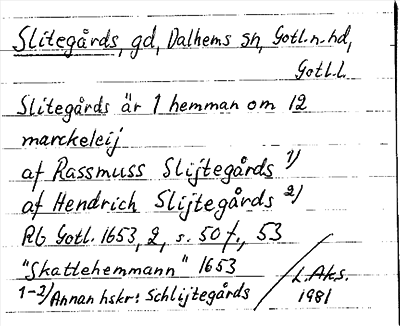 Slitegårds, gd, Dalhems sn, Gotl. n. hd,
Gotl. l.
Slitegårds är 1 hemman om 12
marckeleij
af Rassmuss Slijtegårds 1)
af Hendrich Slijtegårds 2)
Rb Gotl. 1653, 2, s. 50 f., 53
"Skattehemmann" 1653
1-2) Annan hskr: Schlijtegårds
L. Aks.
1981